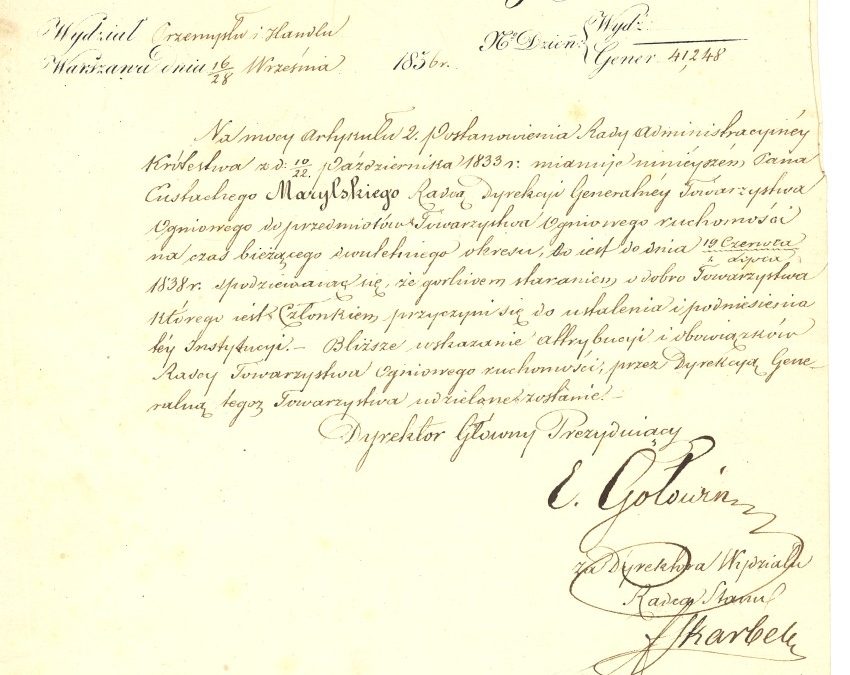 Wydział Przemysłu i Handlu
Nr Dzień: Wydz:
Warszawa dnia 16/28 Września 1836 r.
Gener 41,248
Na mocy Artykułu 2. Postanowienia Rady Administracyjnéy
Królestwa z d: 10/22. Października 1833 r. mianuję ninieyszém Pana
Eustachego Marylskiego Radcą Dyrekcyi Generalnéy Towarzystwa
Ogniowego do przedmiotów Towarzystwa Ogniowego ruchomości
na czas bieżącego dwuletniego okresu, to iest do dnia 19 Czerwca / 1. Lipca
1838 r. spodziewaiąc się, że gorliwem staraniem o dobro Towarzystwa
którego iest Członkiem, przyczyni się do ustalenia i podniesienia
téy Instytucyi. — Bliższe wskazanie attrybucyi i obowiązków
Radcy Towarzystwa Ogniowego ruchomości, przez Dyrekcyą Gene-
ralną tegoż Towarzystwa udzielone zostanie. —
Dyrektor Główny Prezyduiący
E. Gołowin
za Dyrektora Wydziału
Radca Stanu
Skarbek